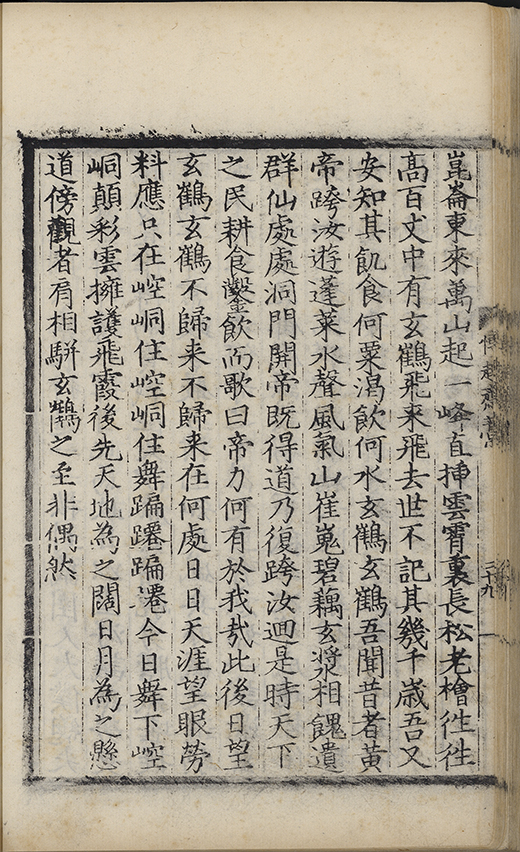 崑崙東來萬山起一峰直揷雲霄裏長松老檜徃徃
高百丈中有玄鶴飛来飛去世不記其幾千歲吾又
安知其飢食何粟渴飲何水玄鶴玄鶴吾聞昔者黃
帝跨汝逰蓬萊水聲風氣山崔嵬碧藕玄漿相餽遺
群仙處處洞門開帝既得道乃復跨汝迴是時天下
之民耕食鑿飲而歌曰帝力何有於我㢤此後日望
玄鶴玄鶴不歸来不歸来在何處日日天涯望眼勞
料應只在崆峒住崆峒住舞蹁躚蹁躚今日舞下崆
峒顛彩雲擁護飛霞後先天地為之闊日月為之懸
道傍觀者肩相駢玄鶴之至非偶然
三十九